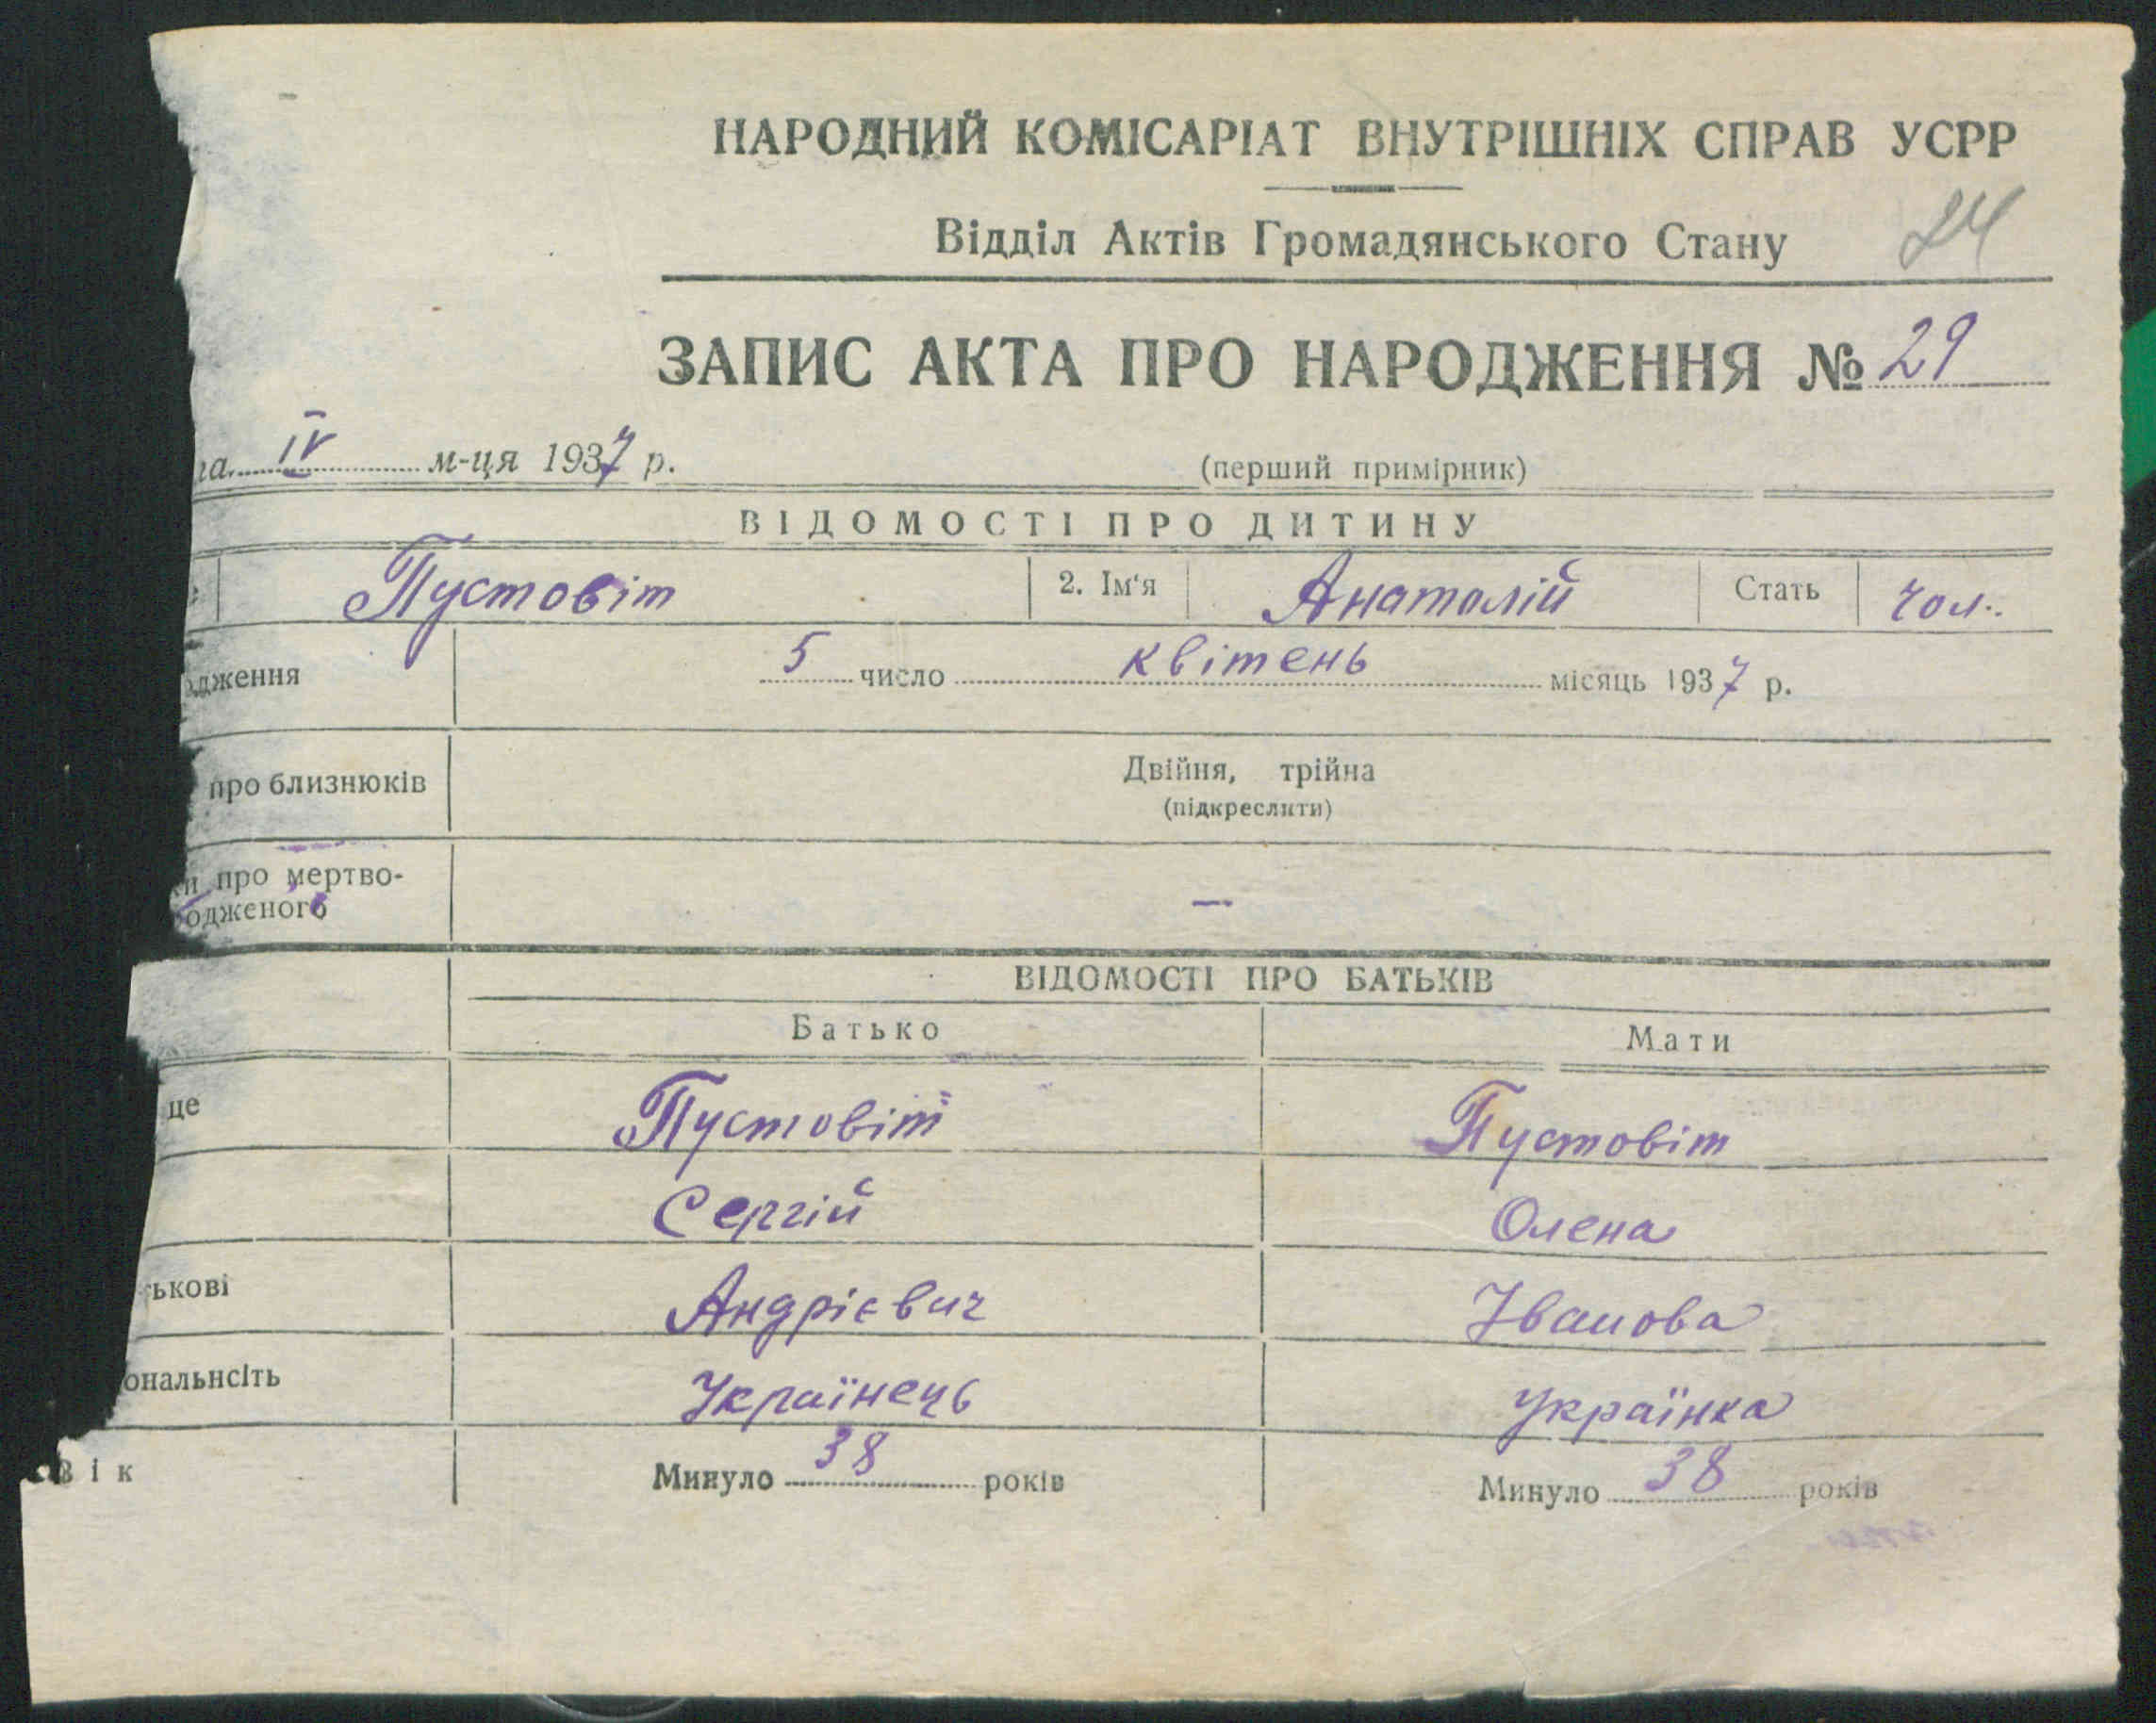 НАРОДНИЙ КОМІСАРІАТ ВНУТРІШНІХ СПРАВ УСРР
Відділ Актів Громадянського Стану 24
ЗАПИС АКТА ПРО НАРОДЖЕННЯ № 29
га IV м-ця 1937 р. (перший примірник)
ВІДОМОСТІ ПРО ДИТИНУ
Пустовіт 2. Ім'я Анатолій Стать чол.
одження 5 число квітень місяць 1937 р.
про близнюків Двійня, трійна
(підкреслити)
ки про мертво-
одженого —
ВІДОМОСТІ ПРО БАТЬКІВ
Батько Мати
це Пустовіт Пустовіт
Сергій Олена
тькові Андрієвич Іванова
ональнсіть Українець Українка
Вік Минуло 38 років Минуло 38 років